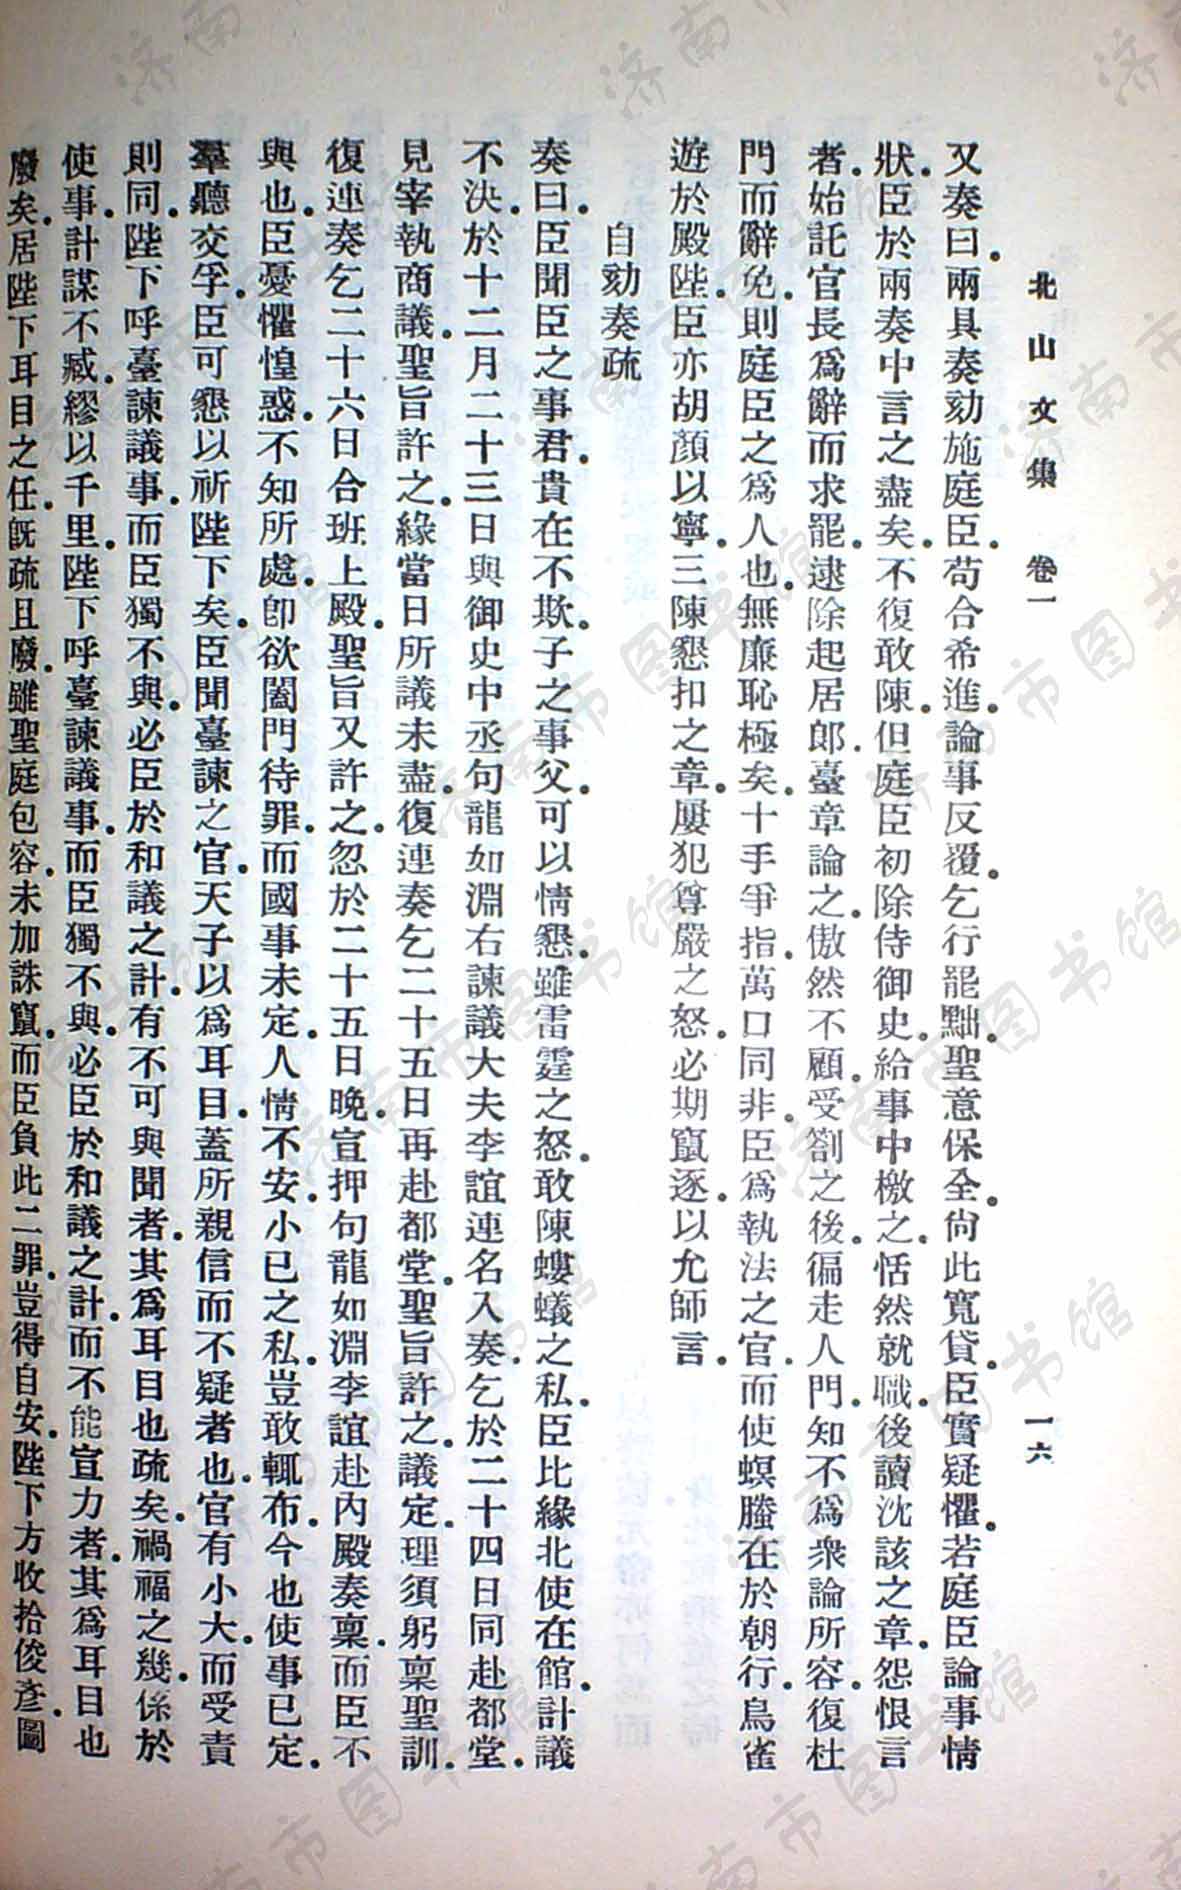 北山文集 卷一 一六
又奏曰。兩具奏劾施庭臣。苟合希進。論事反覆。乞行罷黜。聖意保全。尙此寬貸。臣實疑懼。若庭臣論事情
狀。臣於兩奏中言之盡矣。不復敢陳。但庭臣初除侍御史。給事中檄之。恬然就職。後讀沈該之章。怨恨言
者。始託官長爲辭而求罷。逮除起居郎。臺章論之。傲然不顧。受劄之後。徧走人門。知不爲衆論所容。復杜
門而辭免。則庭臣之爲人也。無廉恥極矣。十手爭指。萬口同非。臣爲執法之官。而使螟螣在於朝行。鳥雀
遊於殿陛。臣亦胡顏以寧。三陳懇扣之章。屢犯尊嚴之怒。必期竄逐。以允師言。
自劾奏疏
奏曰。臣聞臣之事君。貴在不欺。子之事父。可以情懇。雖雷霆之怒。敢陳螻蟻之私。臣比緣北使在館。計議
不決。於十二月二十三日與御史中丞句龍如淵右諫議大夫李誼連名入奏。乞於二十四日同赴都堂。
見宰執商議。聖旨許之。緣當日所議未盡。復連奏乞二十五日再赴都堂。聖旨許之。議定。理須躬稟聖訓。
復連奏乞二十六日合班上殿。聖旨又許之。忽於二十五日晚。宣押句龍如淵李誼赴內殿奏稟。而臣不
與也。臣憂懼惶惑。不知所處。卽欲闔門待罪。而國事未定。人情不安。小已之私。豈敢輒布。今也使事已定。
羣聽交孚。臣可懇以祈陛下矣。臣聞臺諫之官。天子以爲耳目。蓋所親信而不疑者也。官有小大。而受責
則同。陛下呼臺諫議事。而臣獨不與。必臣於和議之計。有不可與聞者。其爲耳目也疏矣。禍福之幾。係於
使事。計謀不臧。繆以千里。陛下呼臺諫議事。而臣獨不與。必臣於和議之計。而不能宣力者。其爲耳目也
廢矣。居陛下耳目之任。旣疏且廢。雖聖庭包容。未加誅竄。而臣負此二罪。豈得自安。陛下方收拾俊彥。圖